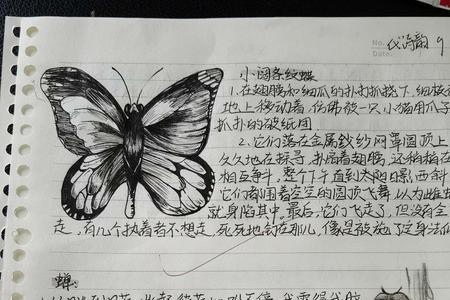 No.
Date.
仪诗韵 9
小阔条纹蝶
1.在翅膀和细爪的扑打抓挠下,细枝
地上移动着,仿佛被一只小猫用爪子
抓扑的破纸团
2.它们落在金属铁纱网罩圆顶上
久久地在探寻,扑扇着翅膀,还稍稍在
相互争斗,整个下午直到太阳偏西斜
它们都围着空空的圆顶飞舞,以为雌
就身陷其中。最后,它们飞走了,但没有全
走,有几个执着者不想走,死死地钉在那儿,像是被施了定身法
蝉: